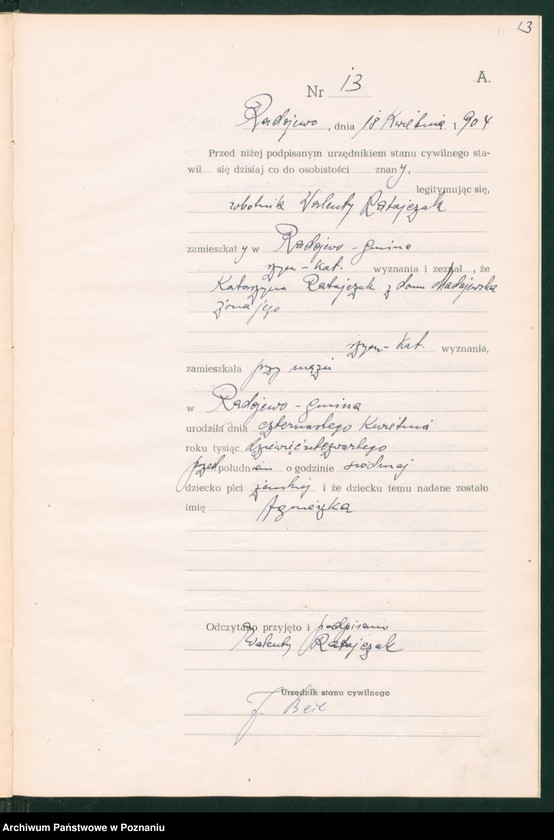 13
A.
Nr 13
Radojewo, dnia 18 Kwietnia 1904
Przed niżej podpisanym urzędnikiem stanu cywilnego sta-
wił się dzisiaj co do osobistości znany,
legitymując się,
robotnik Walenty Ratajczak
zamieszkały w Radojewo - gmina
rzym - kat. wyznania i zeznał, że
Katarzyna Ratajczak z domu Madajewska
żona jego
rzym - kat. wyznania,
zamieszkała przy mężu
w Radojewo - gmina
urodziła dnia czternastego Kwietnia
roku tysiąc dziewięćsetczwartego
przed południem o godzinie siódmej
dziecko płci żeńskiej i że dziecku temu nadane zostało
imię Agnieszka
Odczytano przyjęto i podpisano
Walenty Ratajczak
Urzędnik stanu cywilnego
J. Beil
Archiwum Państwowe w Poznaniu